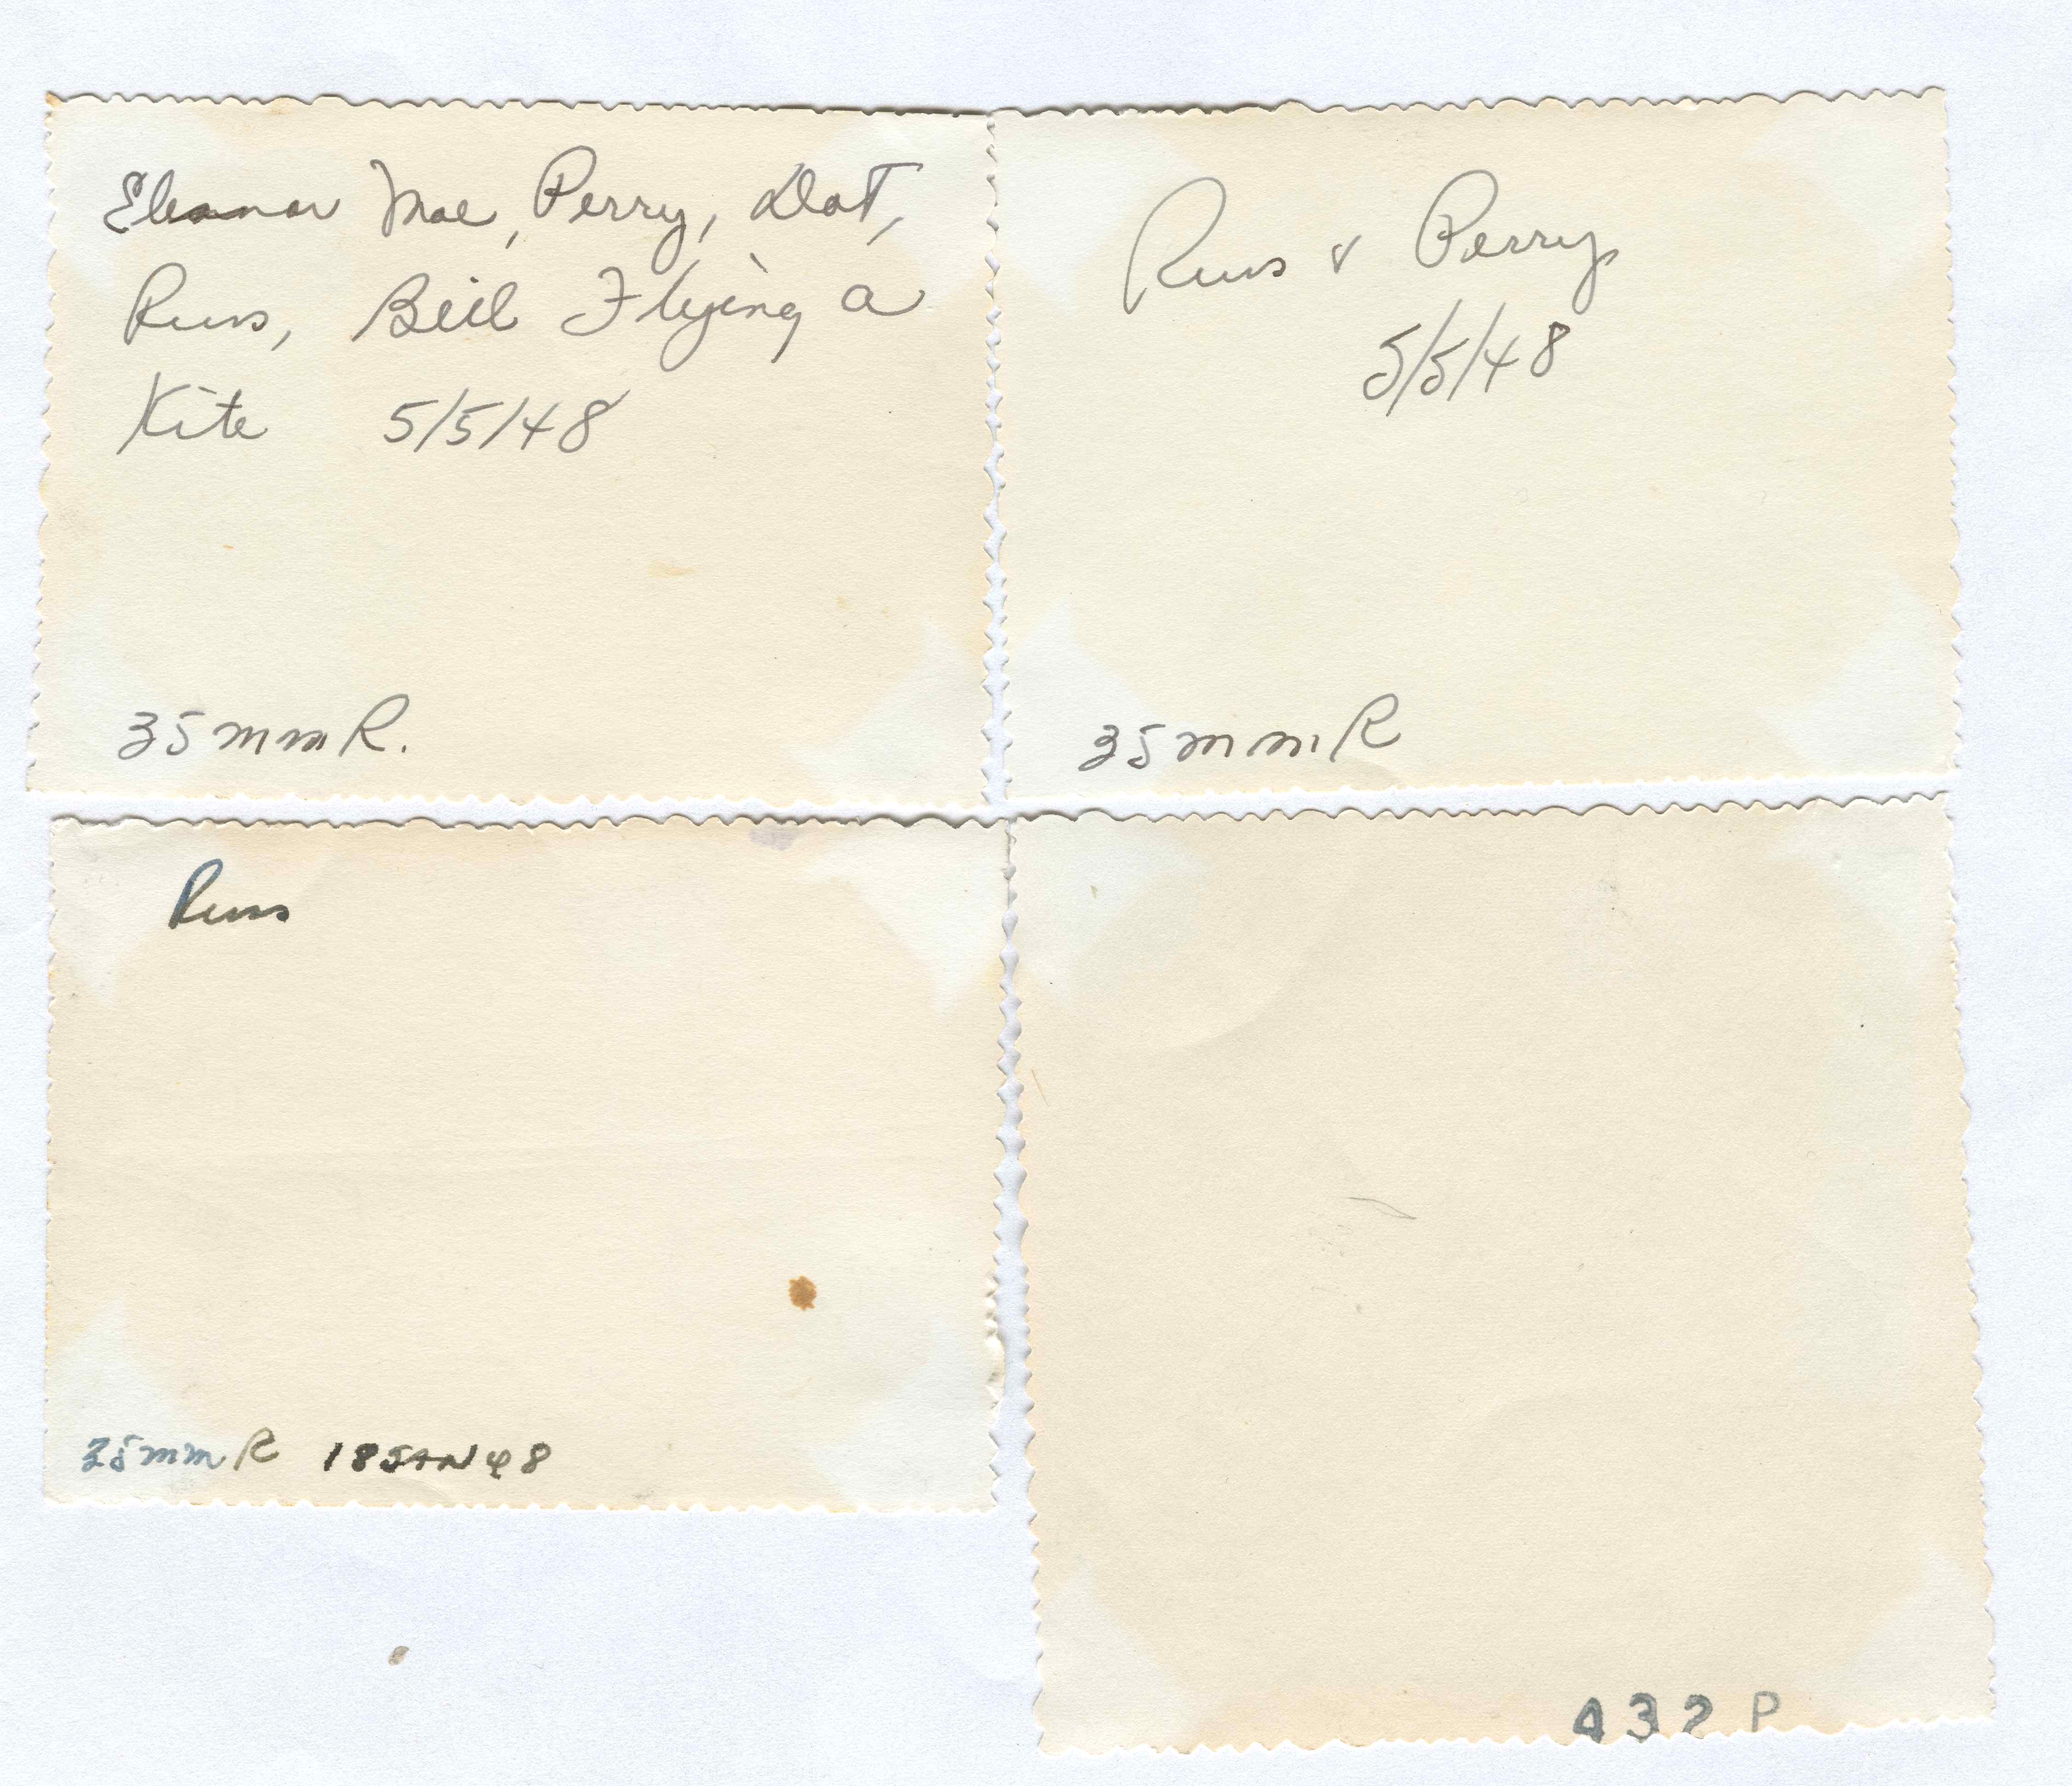 Eleanor Mae, Perry, Dot,
Russ, Bill Flying a
Kite 5/5/48
35mmR.
Russ & Perry
5/5/48
35mmR
Russ
35mmR 18JAN48
432 P